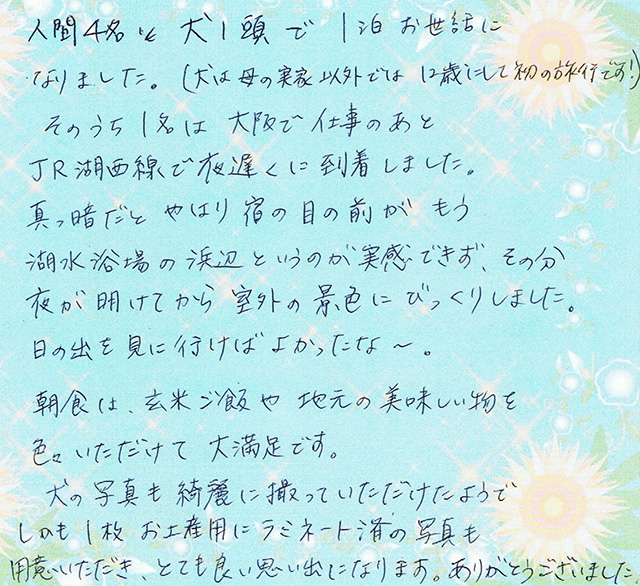 人間4名と犬1頭で1泊お世話に
なりました。(犬は母の実家以外では12歳にして初の旅行です!)
そのうち1名は大阪で仕事のあと
JR湖西線で夜遅くに到着しました。
真っ暗だとやはり宿の目の前がもう
湖水浴場の浜辺というのが実感できず、その分
夜が明けてから室外の景色にびっくりしました。
日の出を見に行けばよかったな〜。
朝食は、玄米ご飯や地元の美味しい物を
色々いただけて大満足です。
犬の写真も綺麗に撮っていただけたようで
しかも1枚お土産用にラミネート済の写真も
用意いただき、とても良い思い出になります。ありがとうございました